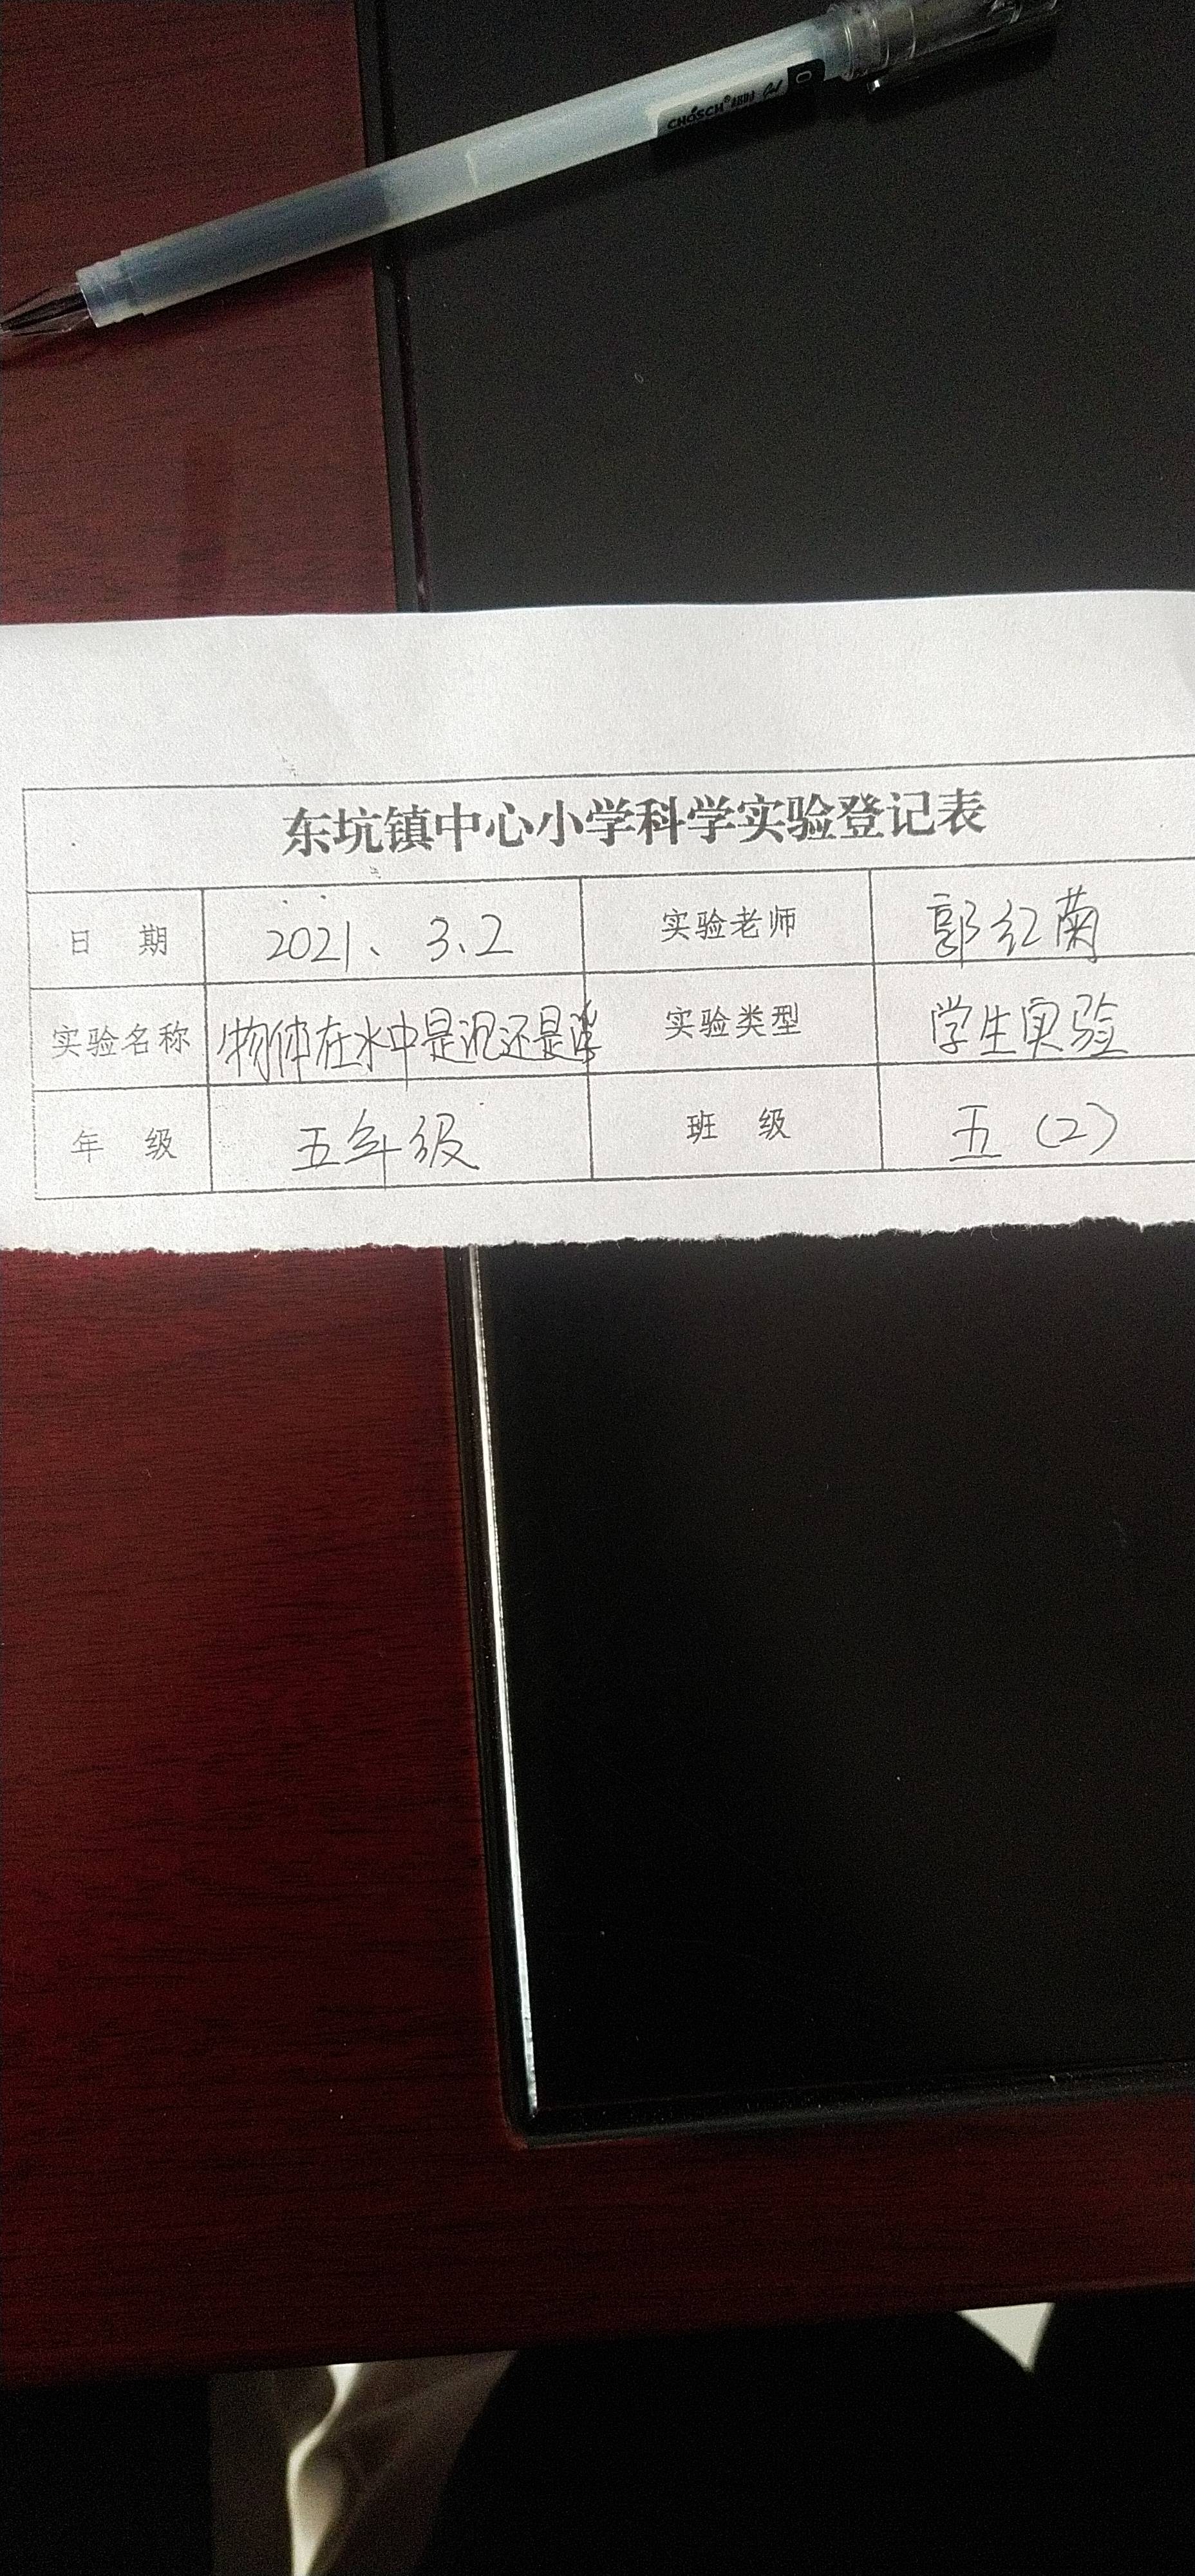 CHOSCH®
东坑镇中心小学科学实验登记表
日 期 2021、3、2 实验老师 郭红菊
实验名称 物体在水中是沉还是浮 实验类型 学生实验
年 级 五年级 班 级 五(2)